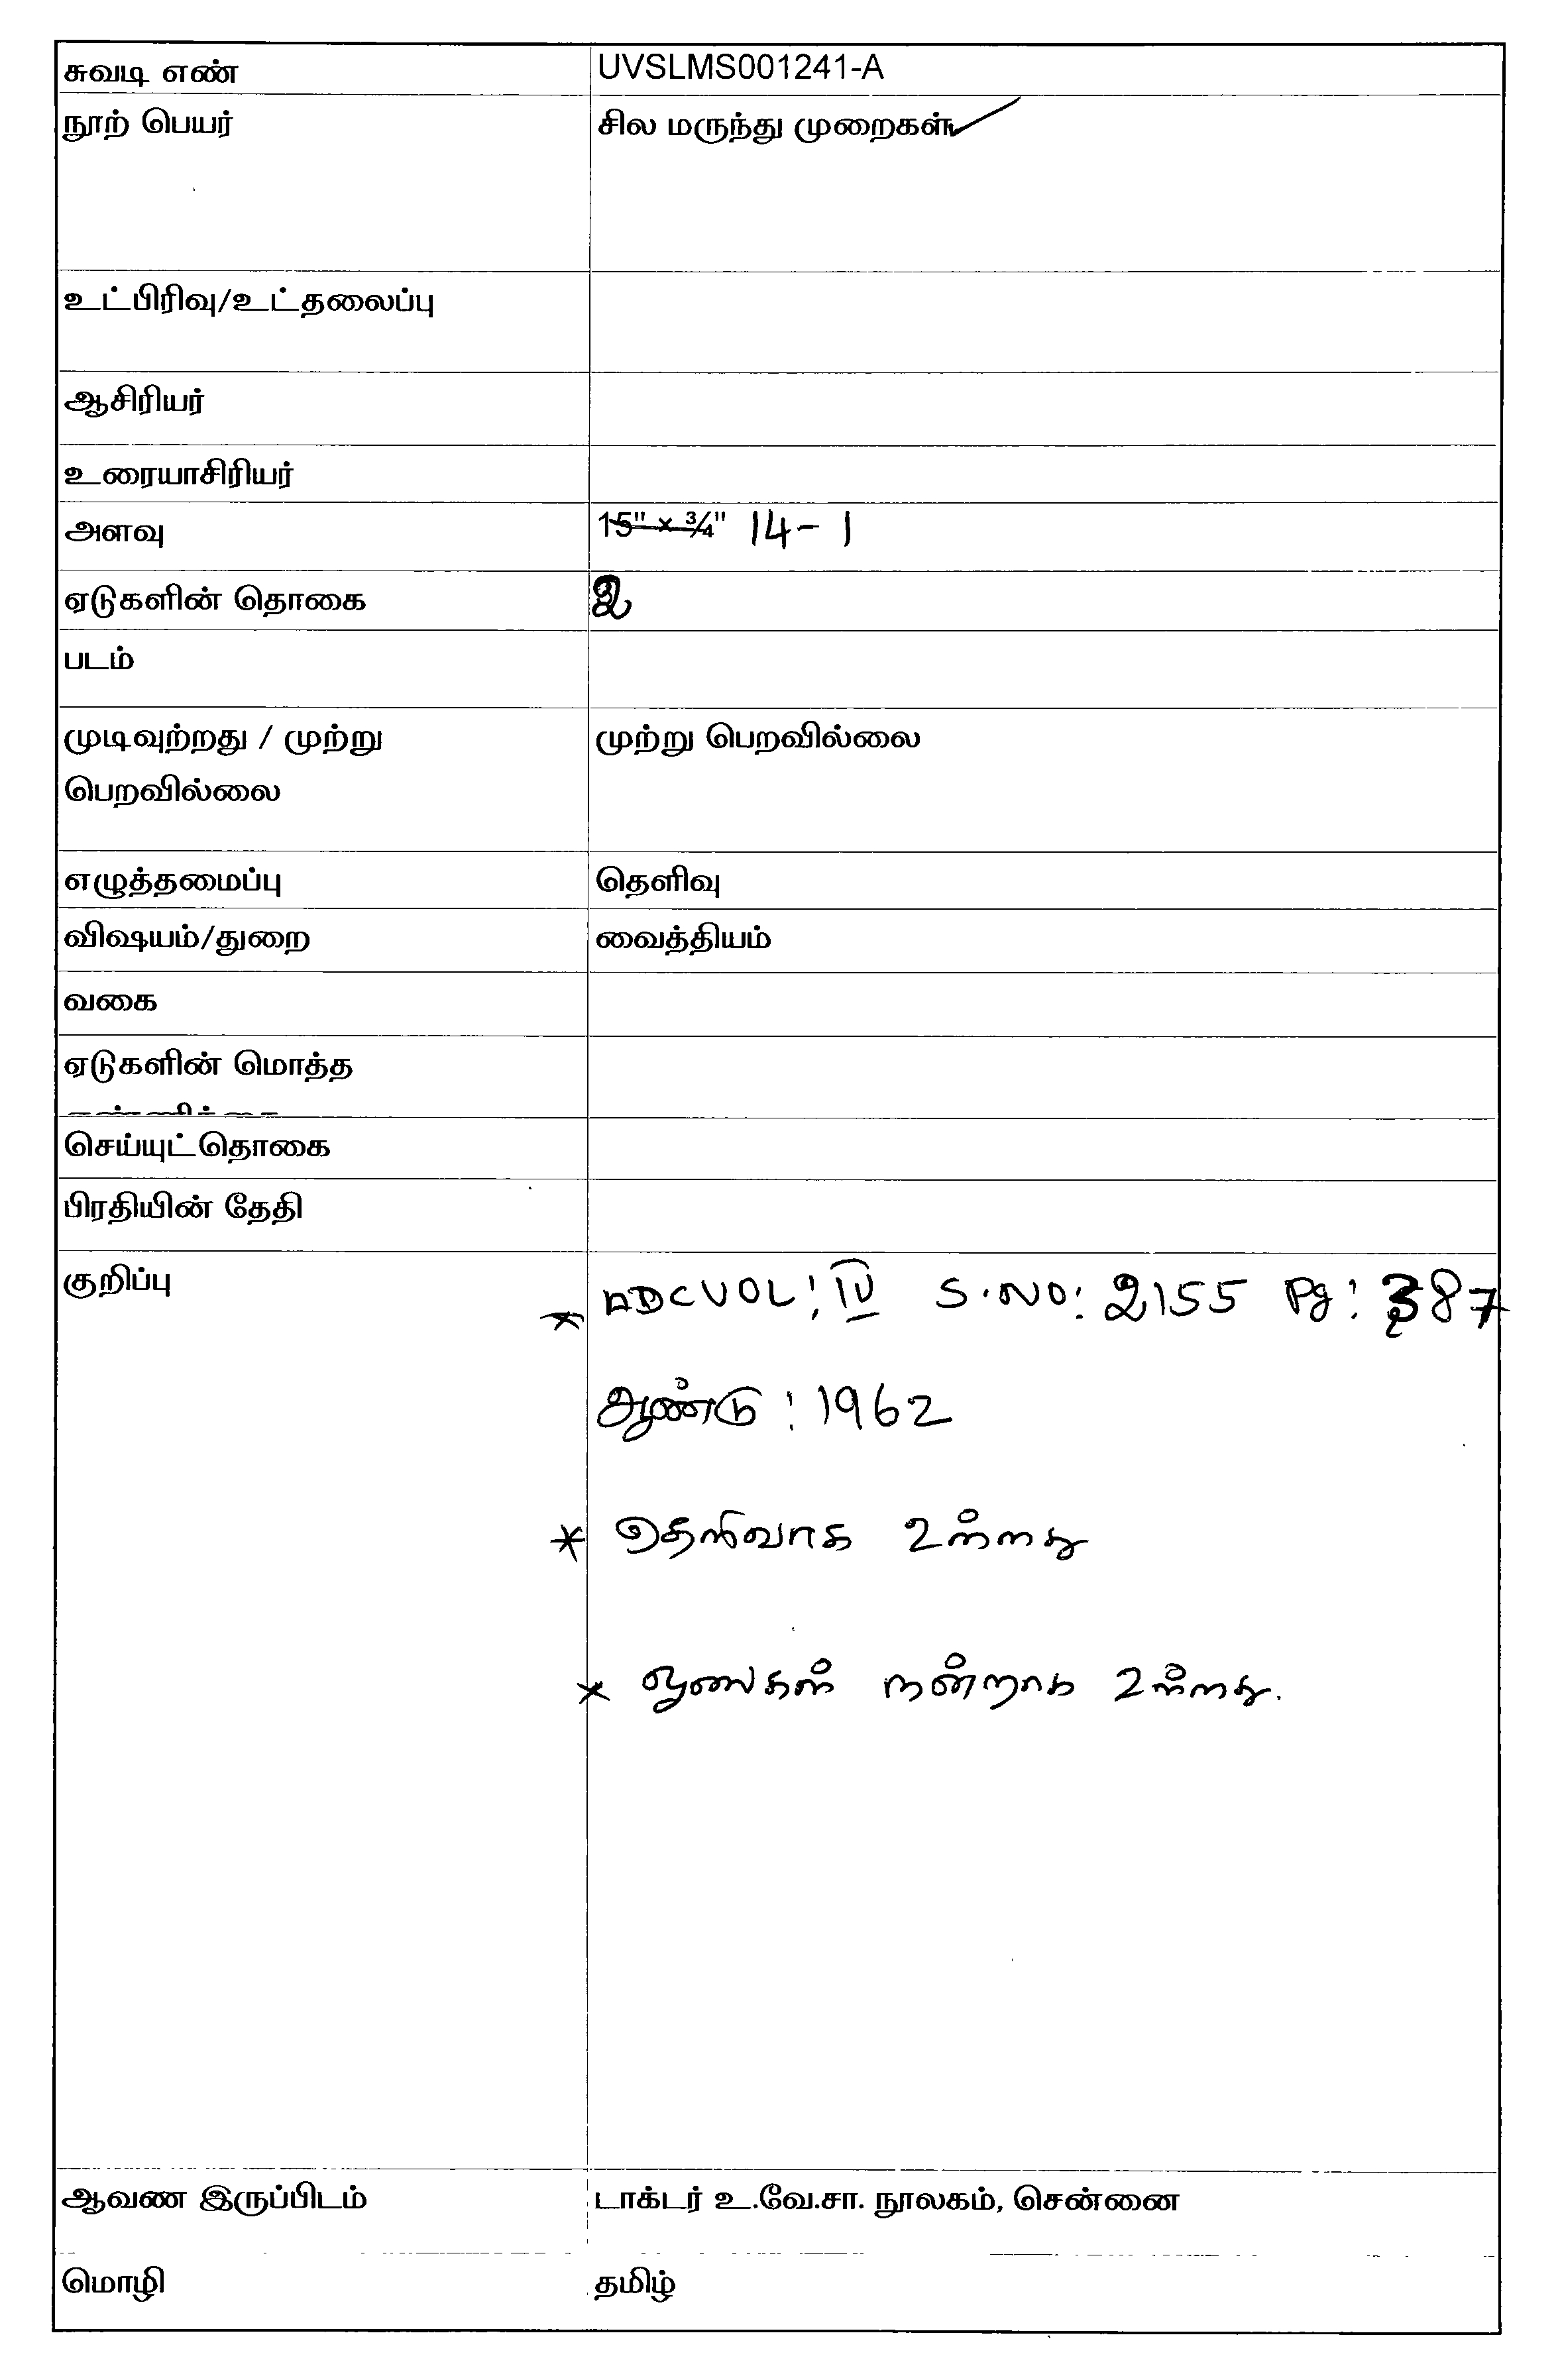 சுவடி எண் UVSLMS001241-A
நூற் பெயர் சில மருந்து முறைகள்
உட்பிரிவு/உட்தலைப்பு
ஆசிரியர்
உரையாசிரியர்
அளவு 15" x ¾" 14-1
ஏடுகளின் தொகை
படம்
முடிவுற்றது / முற்று முற்று பெறவில்லை
பெறவில்லை
எழுத்தமைப்பு தெளிவு
விஷயம்/துறை வைத்தியம்
வகை
ஏடுகளின் மொத்த
செய்யுட்தொகை
பிரதியின் தேதி
குறிப்பு * ADCVOL: IV S.NO: 2155 Pg: 387
ஆண்டு : 1962
* தெளிவாக உள்ளது
* ஓலைகள் நன்றாக உள்ளது.
ஆவண இருப்பிடம் டாக்டர் உ.வே.சா. நூலகம், சென்னை
மொழி தமிழ்